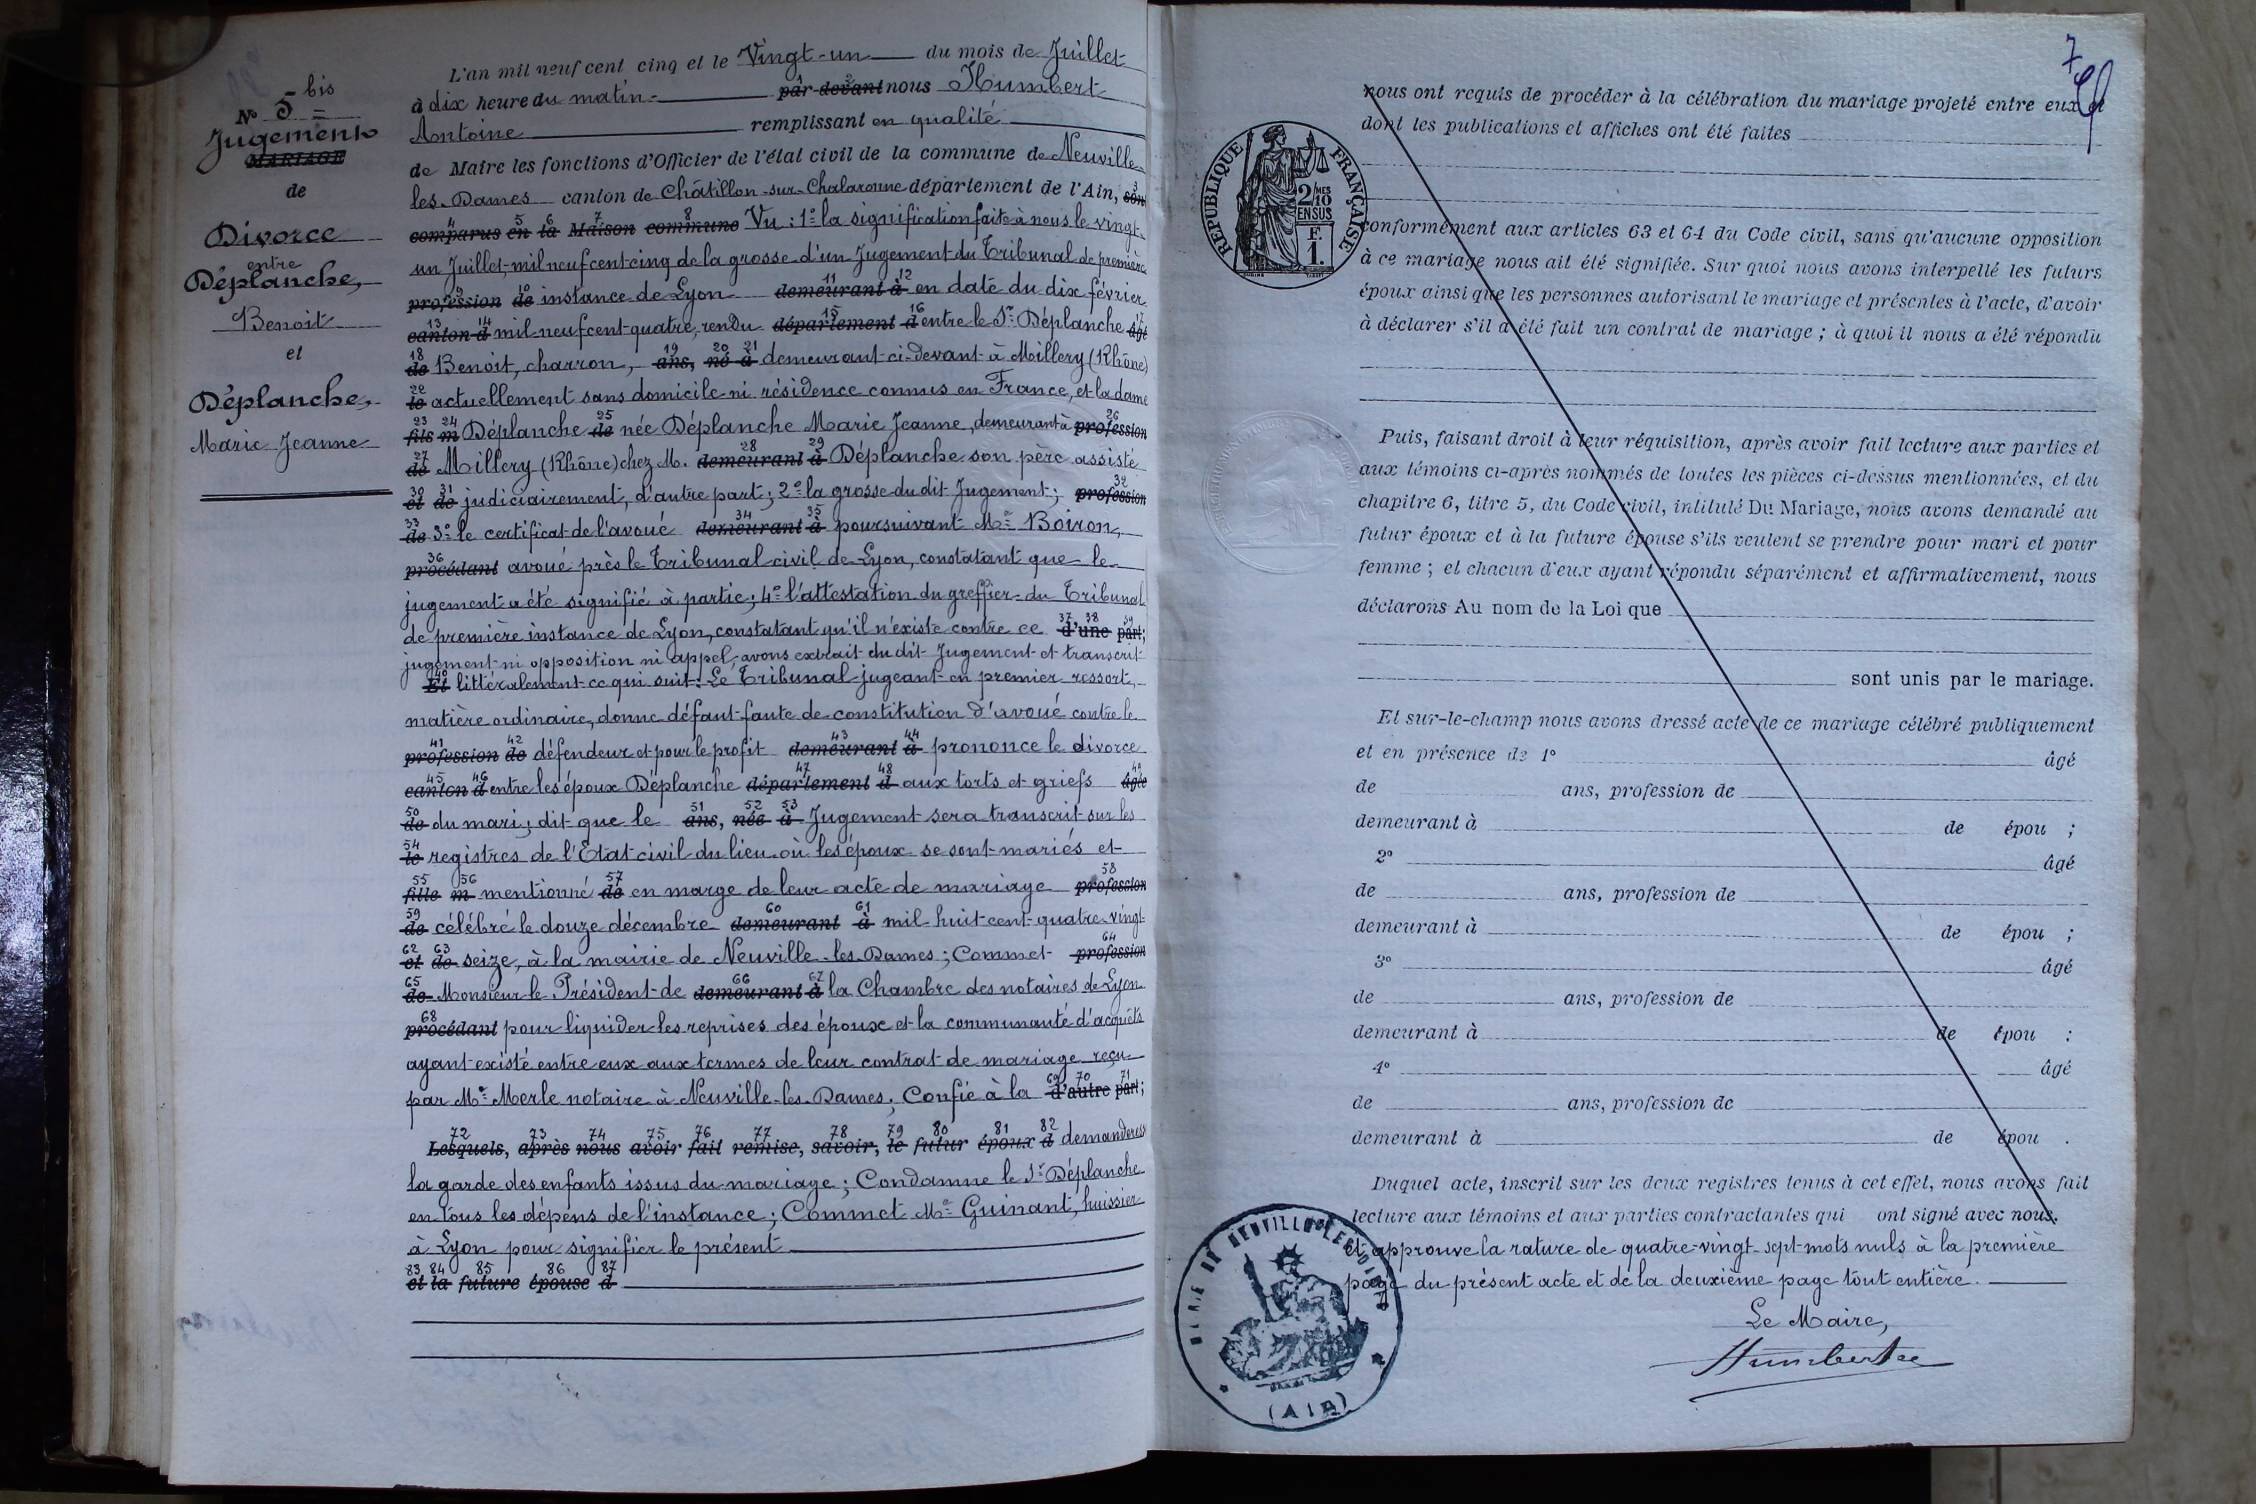 N° 5 bis
Jugement
MARIAGE
de
Divorce
entre
Déplanche,
Benoit
et
Déplanche,
Marie Jeanne
L'an mil neuf cent cinq et le Vingt-un du mois de Juillet
à dix heure du matin par-devant nous Humbert
Antoine remplissant en qualité
de Maire les fonctions d'Officier de l'état civil de la commune de Neuville
les-Dames canton de Châtillon-sur-Chalaronne département de l'Ain, son
comparus en la Maison commune Vu : 1° la signification faite à nous le vingt-
un Juillet mil neuf cent cinq de la grosse d'un Jugement du Tribunal de première
profession de instance de Lyon demeurant à en date du dix février
canton d mil neuf cent quatre, rendu département d entre le Sr Déplanche âgé
de Benoit, charron, ans, né à demeurant ci-devant à Millery (Rhône)
le actuellement sans domicile ni résidence connus en France, et la dame
fils m Déplanche de née Déplanche Marie Jeanne, demeurant à profession
de Millery (Rhône) chez M. demeurant à Déplanche son père assisté
et de judiciairement, d'autre part ; 2° la grosse du dit Jugement ; profession
de 3° le certificat de l'avoué demeurant à poursuivant Me Boiron,
procédant avoué près le Tribunal civil de Lyon, constatant que le
jugement a été signifié à partie ; 4° l'attestation du greffier du Tribunal
de première instance de Lyon, constatant qu'il n'existe contre ce d'une part;
jugement ni opposition ni appel, avons extrait du dit Jugement et transcrit
Et littéralement ce qui suit : Le Tribunal jugeant en premier ressort,
matière ordinaire, donne défaut faute de constitution d'avoué contre le
profession de défendeur et pour le profit demeurant à prononce le divorce
canton d entre les époux Déplanche département d aux torts et griefs âgée
de du mari ; dit que le ans, née à Jugement sera transcrit sur les
le registres de l'Etat civil du lieu où les époux se sont mariés et
fille m mentionné de en marge de leur acte de mariage profession
de célébré le douze décembre demeurant à mil huit cent quatre-vingt-
et de seize, à la mairie de Neuville-les-Dames ; Commet profession
de Monsieur le Président de demeurant à la Chambre des notaires de Lyon
procédant pour liquider les reprises des époux et la communauté d'acquêts
ayant existé entre eux aux termes de leur contrat de mariage reçu
par Me Merle notaire à Neuville-les-Dames ; Confie à la d'autre part;
Lesquels, après nous avoir fait remise, savoir, le futur époux d demanderesse
la garde des enfants issus du mariage ; Condamne le Sr Déplanche
en tous les dépens de l'instance ; Commet Me Guinant, huissier
à Lyon pour signifier le présent
et la future épouse d
7
nous ont requis de procéder à la célébration du mariage projeté entre eux et
dont les publications et affiches ont été faites
RÉPUBLIQUE FRANÇAISE
2/10 MES
EN SUS
F.
1.
conformément aux articles 63 et 64 du Code civil, sans qu'aucune opposition
à ce mariage nous ait été signifiée. Sur quoi nous avons interpellé les futurs
époux ainsi que les personnes autorisant le mariage et présentes à l'acte, d'avoir
à déclarer s'il a été fait un contrat de mariage ; à quoi il nous a été répondu
Puis, faisant droit à leur réquisition, après avoir fait lecture aux parties et
aux témoins ci-après nommés de toutes les pièces ci-dessus mentionnées, et du
chapitre 6, titre 5, du Code civil, intitulé Du Mariage, nous avons demandé au
futur époux et à la future épouse s'ils veulent se prendre pour mari et pour
femme ; et chacun d'eux ayant répondu séparément et affirmativement, nous
déclarons Au nom de la Loi que
sont unis par le mariage.
Et sur-le-champ nous avons dressé acte de ce mariage célébré publiquement
et en présence de 1° âgé
de ans, profession de
demeurant à de épou ;
2° âgé
de ans, profession de
demeurant à de épou ;
3° âgé
de ans, profession de
demeurant à de épou ;
4° âgé
de ans, profession de
demeurant à de épou .
Duquel acte, inscrit sur les deux registres tenus à cet effet, nous avons fait
lecture aux témoins et aux parties contractantes qui ont signé avec nous.
et approuve la rature de quatre-vingt-sept mots nuls à la première
page du présent acte et de la deuxième page tout entière.
Le Maire,
Humbert
MAIRIE DE NEUVILLE-LES-DAMES
(AIN)